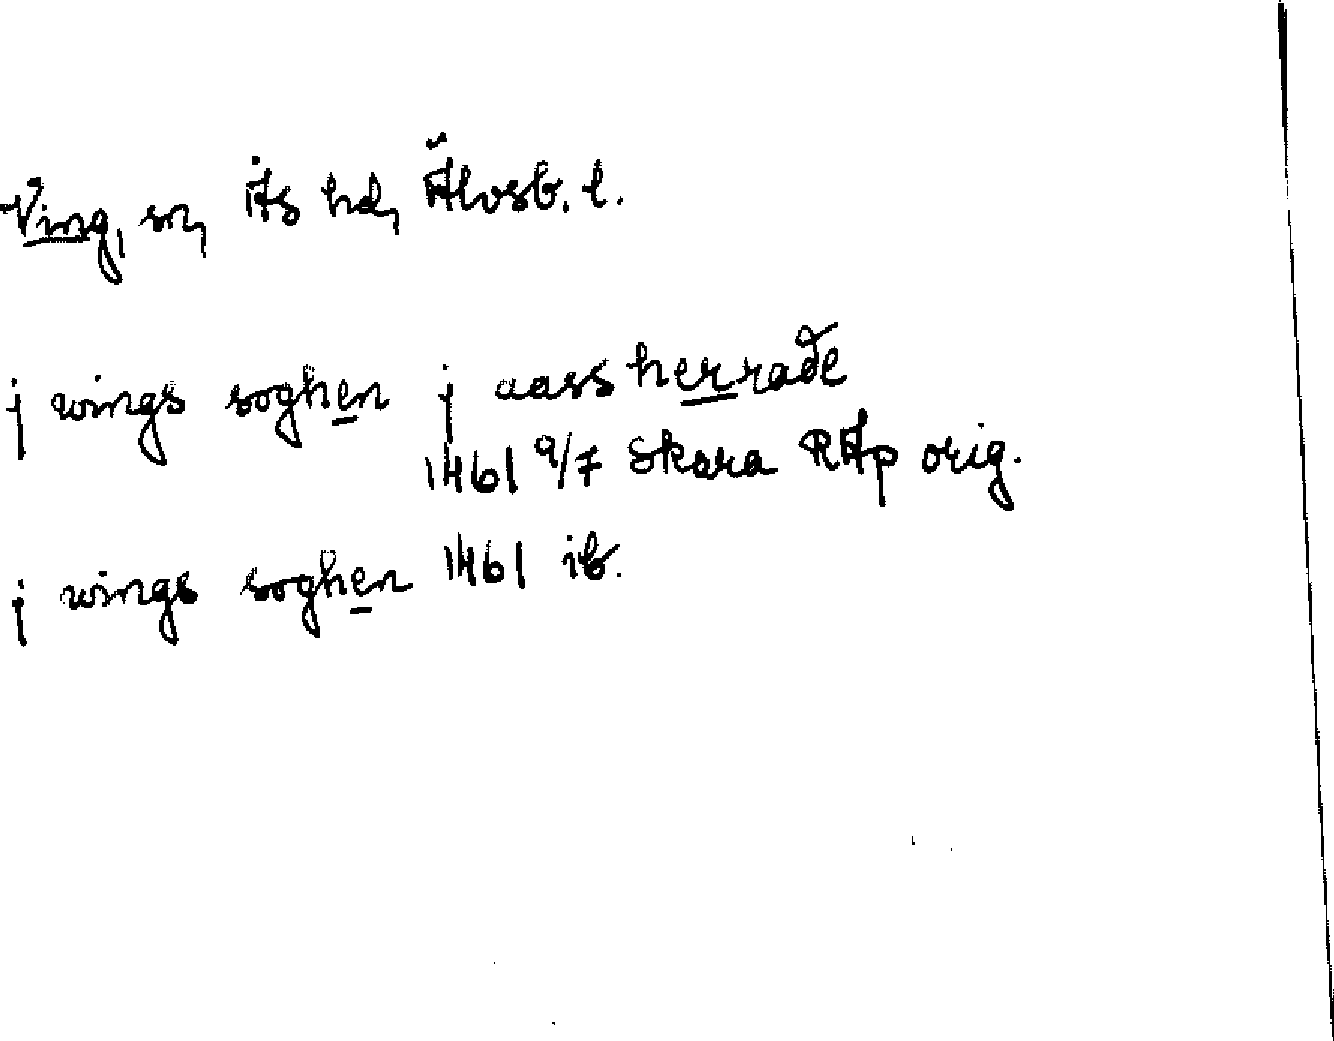 Ving, sn, Ås hd, Älvsb. l.
j wings soghen j aass herrade
1461 9/7 Skara RAp orig.
j wings soghen 1461 ib.